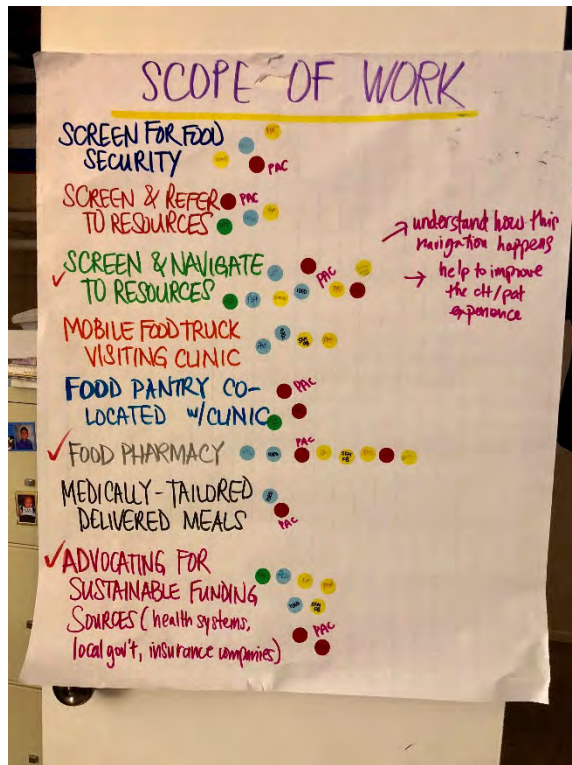 SCOPE OF WORK
SCREEN FOR FOOD
SECURITY
PAC
SCREEN & REFER
TO RESOURCES
PAC
✓ SCREEN & NAVIGATE
TO RESOURCES
PAC
→ understand how this
navigation happens
→ help to improve
the clt/pat
experience
MOBILE FOOD TRUCK
VISITING CLINIC
FOOD PANTRY CO-
LOCATED w/CLINIC
PAC
✓ FOOD PHARMACY
PAC
MEDICALLY-TAILORED
DELIVERED MEALS
PAC
✓ ADVOCATING FOR
SUSTAINABLE FUNDING
SOURCES (health systems,
local gov't, insurance companies)
PAC